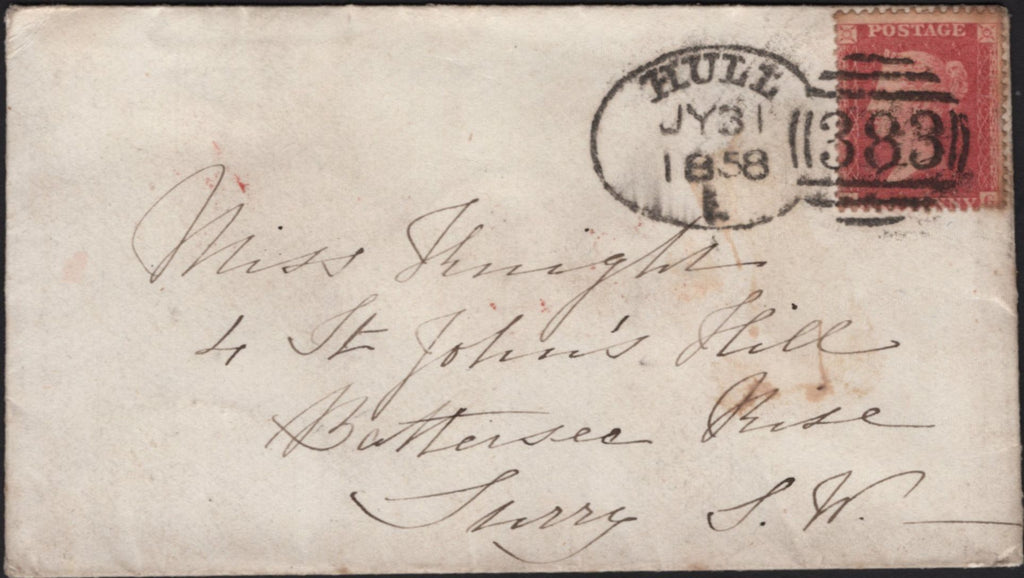 POSTAGE
HULL
JY 31
1858
383
PENNY G
Miss Knight
4 St John's Hill
Battersee Rise
Surry S. W.